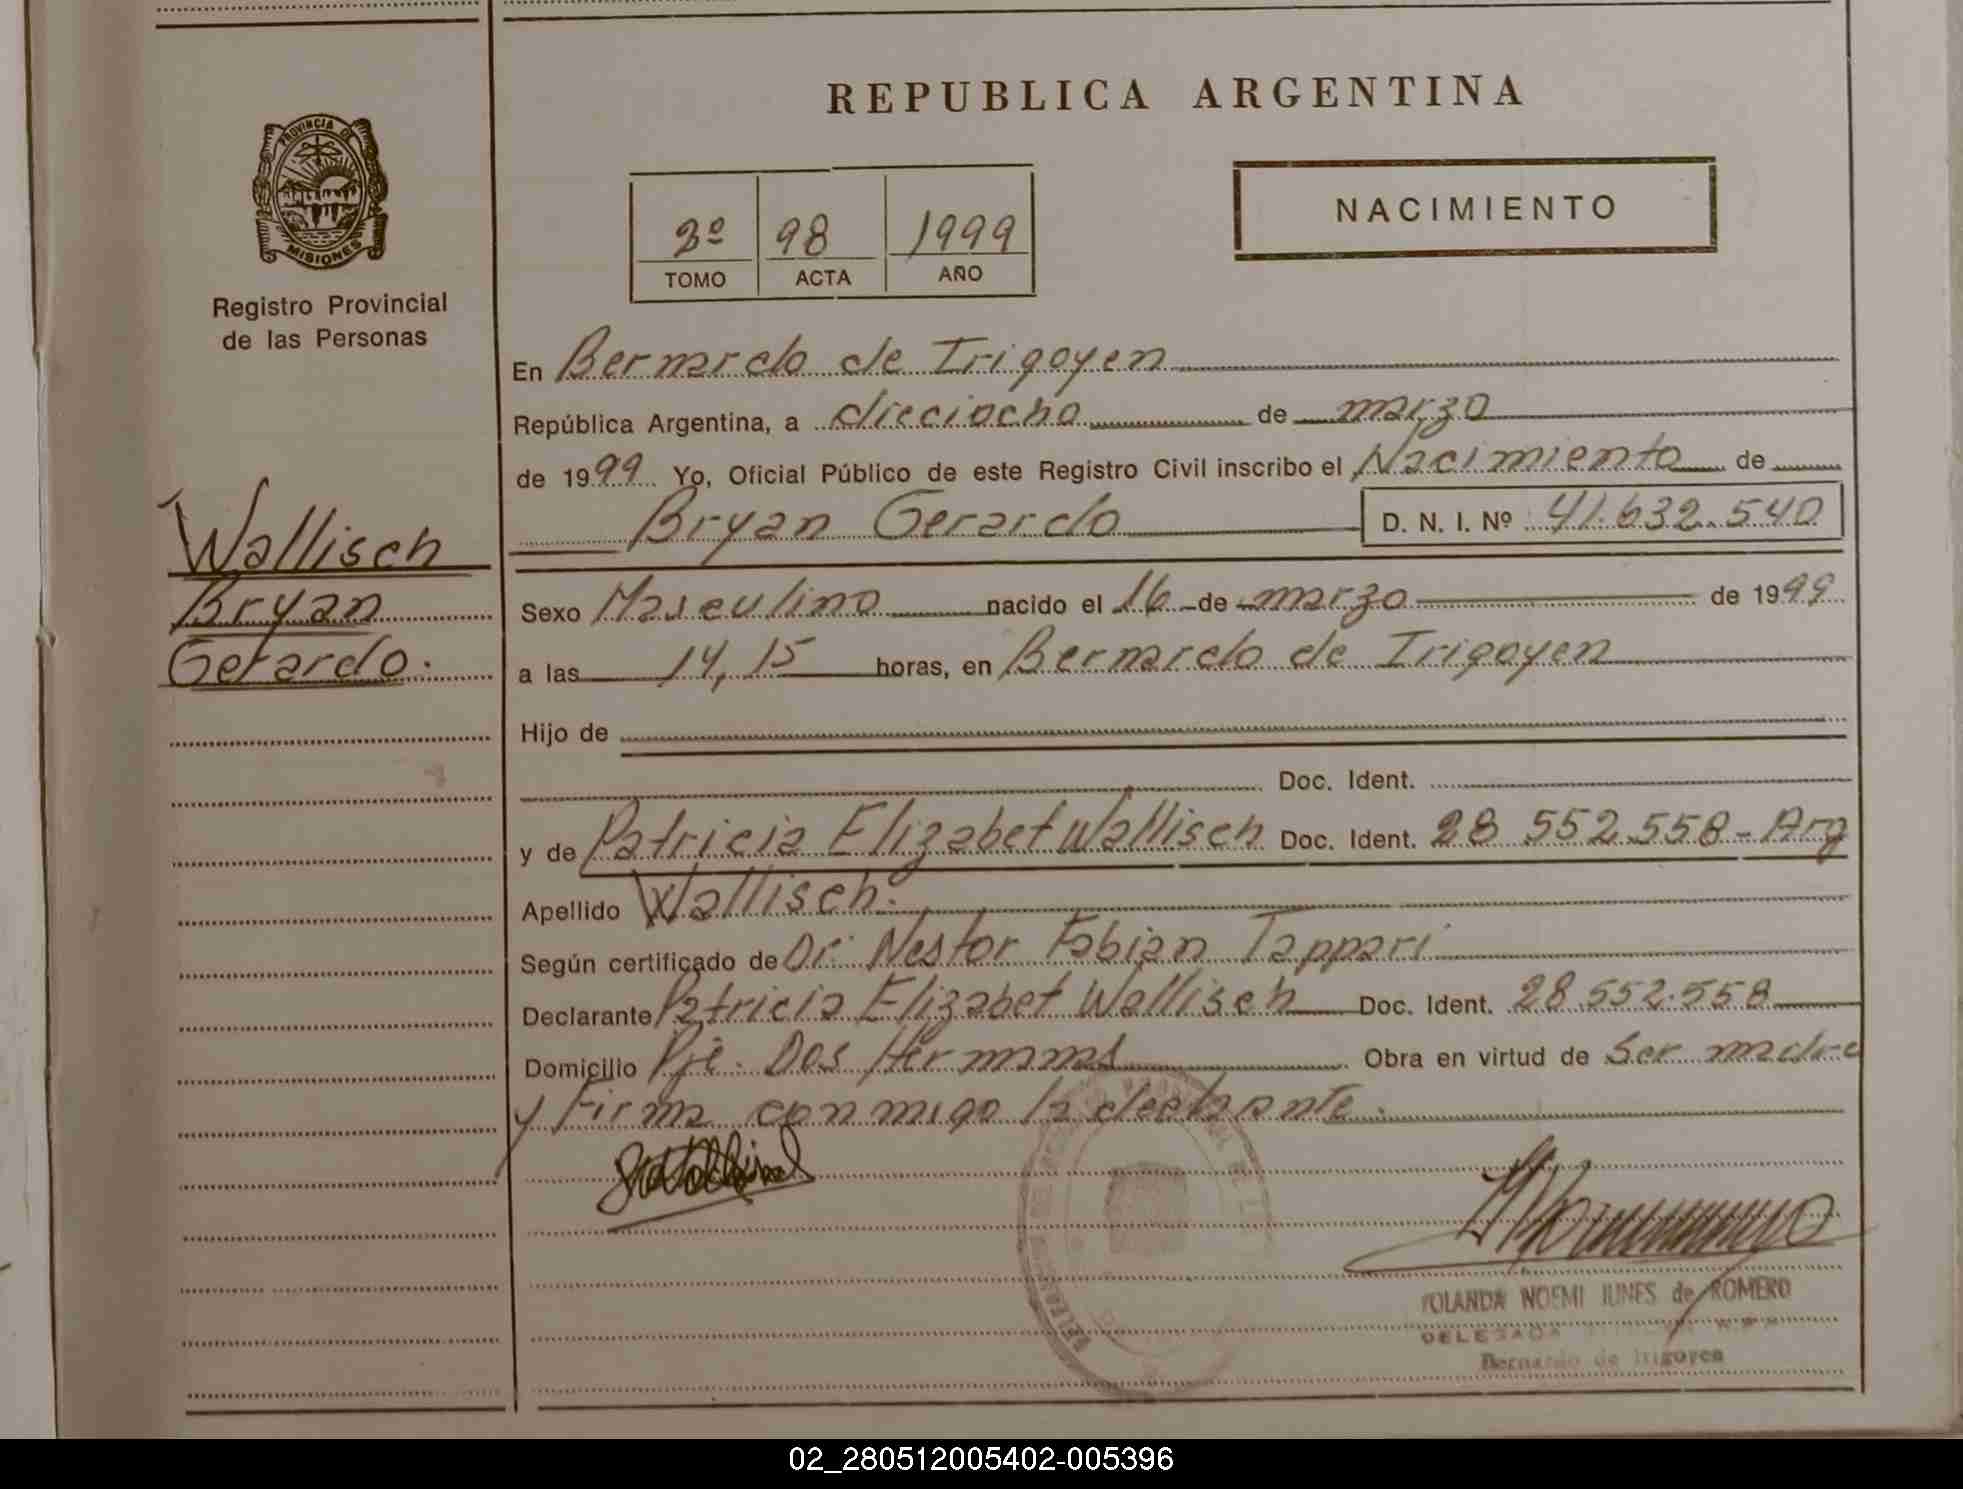 REPUBLICA ARGENTINA
PROVINCIA DE
MISIONES
Registro Provincial
de las Personas
2º 98 1999
TOMO ACTA AÑO
NACIMIENTO
Wallisch
Bryan
Gerardo.
En Bernardo de Irigoyen
República Argentina, a dieciocho de marzo
de 1999 Yo, Oficial Público de este Registro Civil inscribo el Nacimiento de
Bryan Gerardo D. N. I. Nº 41.632.540
Sexo Masculino nacido el 16 de marzo de 1999
a las 14,15 horas, en Bernardo de Irigoyen
Hijo de
Doc. Ident.
y de Patricia Elizabet Wallisch Doc. Ident. 28 552.558-Arg
Apellido Wallisch.
Según certificado de Dr. Nestor Fabian Tappari
Declarante Patricia Elizabet Wallisch Doc. Ident. 28.552.558
Domicilio Pje. Dos Hermanas Obra en virtud de Ser madre
y Firma conmigo la declarante.
YOLANDA NOEMI JUNES de ROMERO
DELEGADA
Bernardo de Irigoyen
02_280512005402-005396